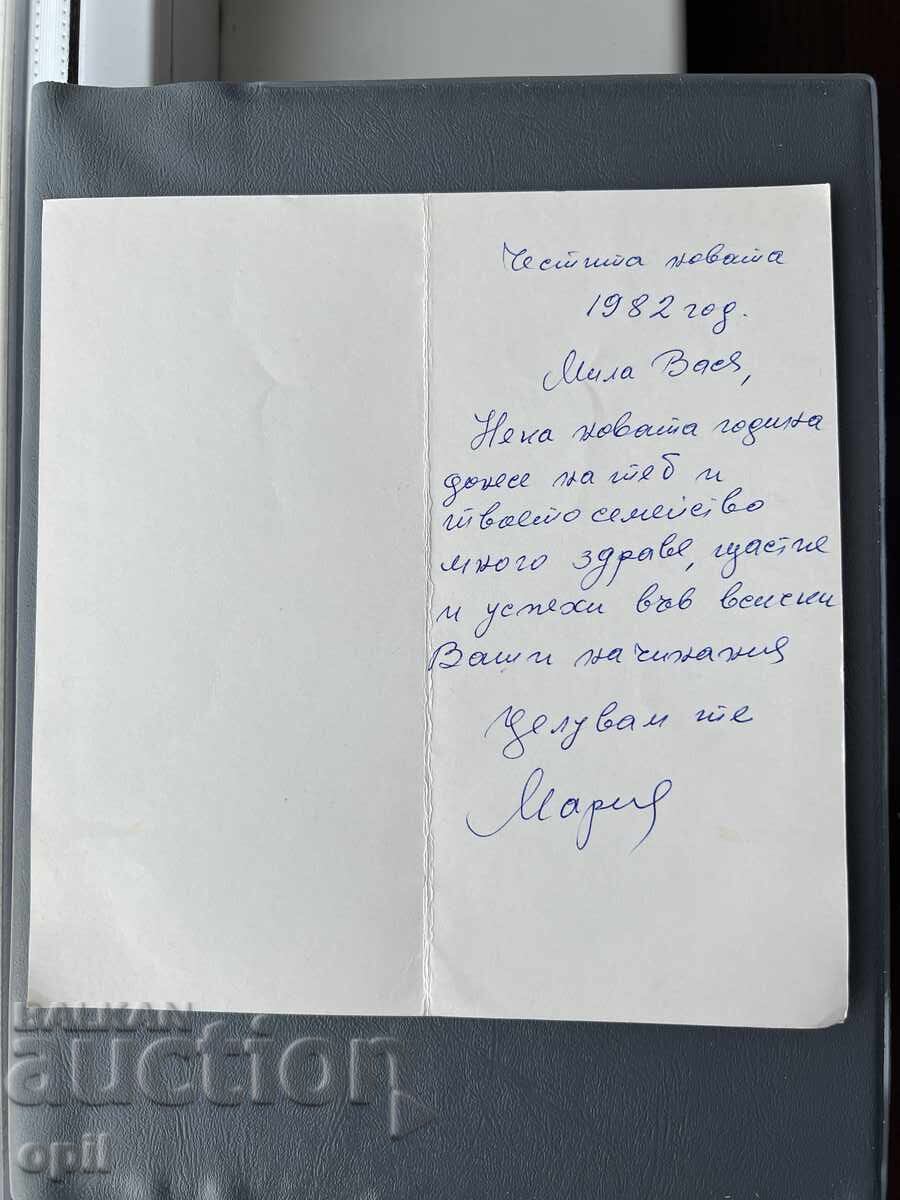 Честита новата
1982 год.
Мила Вася,
Нека новата година
донесе на теб и
твоето семейство
много здраве, щастие
и успехи във всички
Ваши начинания
Целувам те
Мария
BALKAN
auction
opil